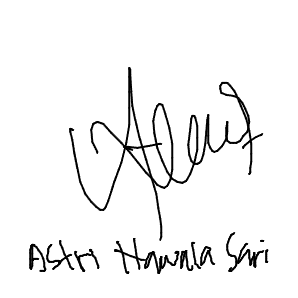 Astri Hawala Sari